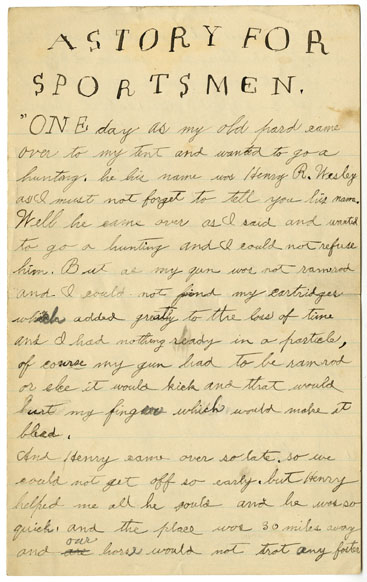 A STORY FOR
SPORTSMEN.
"ONE day as my old pard came
over to my tent and wanted to go a
hunting. he his name was Henry R. Wesley
as I must not forget to tell you his name.
Well he came over as I said and wanted
to go a hunting and I could not refuse
him. But as my gun was not ramrod
and I could not find my cartridges
which added greatly to the loss of time
and I had nothing ready in a particle,
of course my gun had to be ramrod
or else it would kick and that would
hurt my fingers which would make it
bleed.
And Henry came over so late. so we
could not get off so early. but Henry
helped me all he could and he was so
quick. and the place was 30 miles away
and our horse would not trot any faster